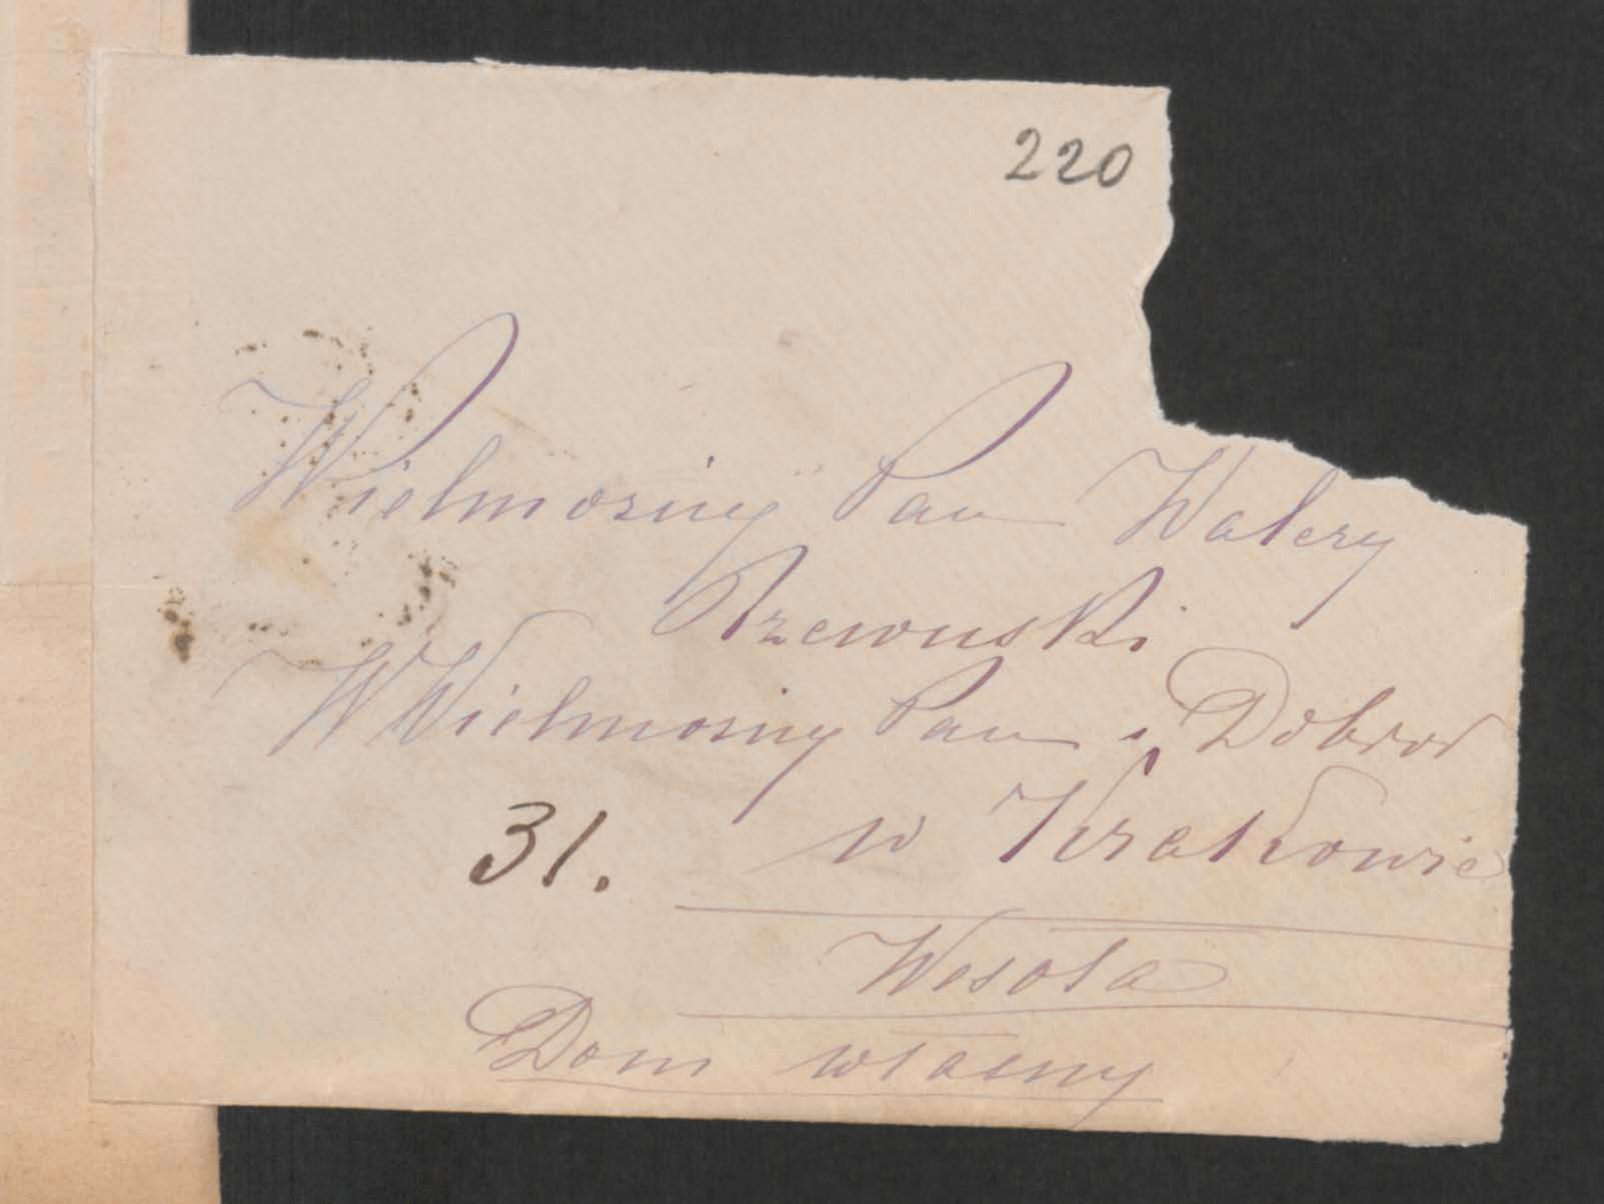 220
Wielmożny Pan Walery
Rzewuski
WWielmożny Pan i Dobrod
31. w Krakowie
Wesoła
Dom własny